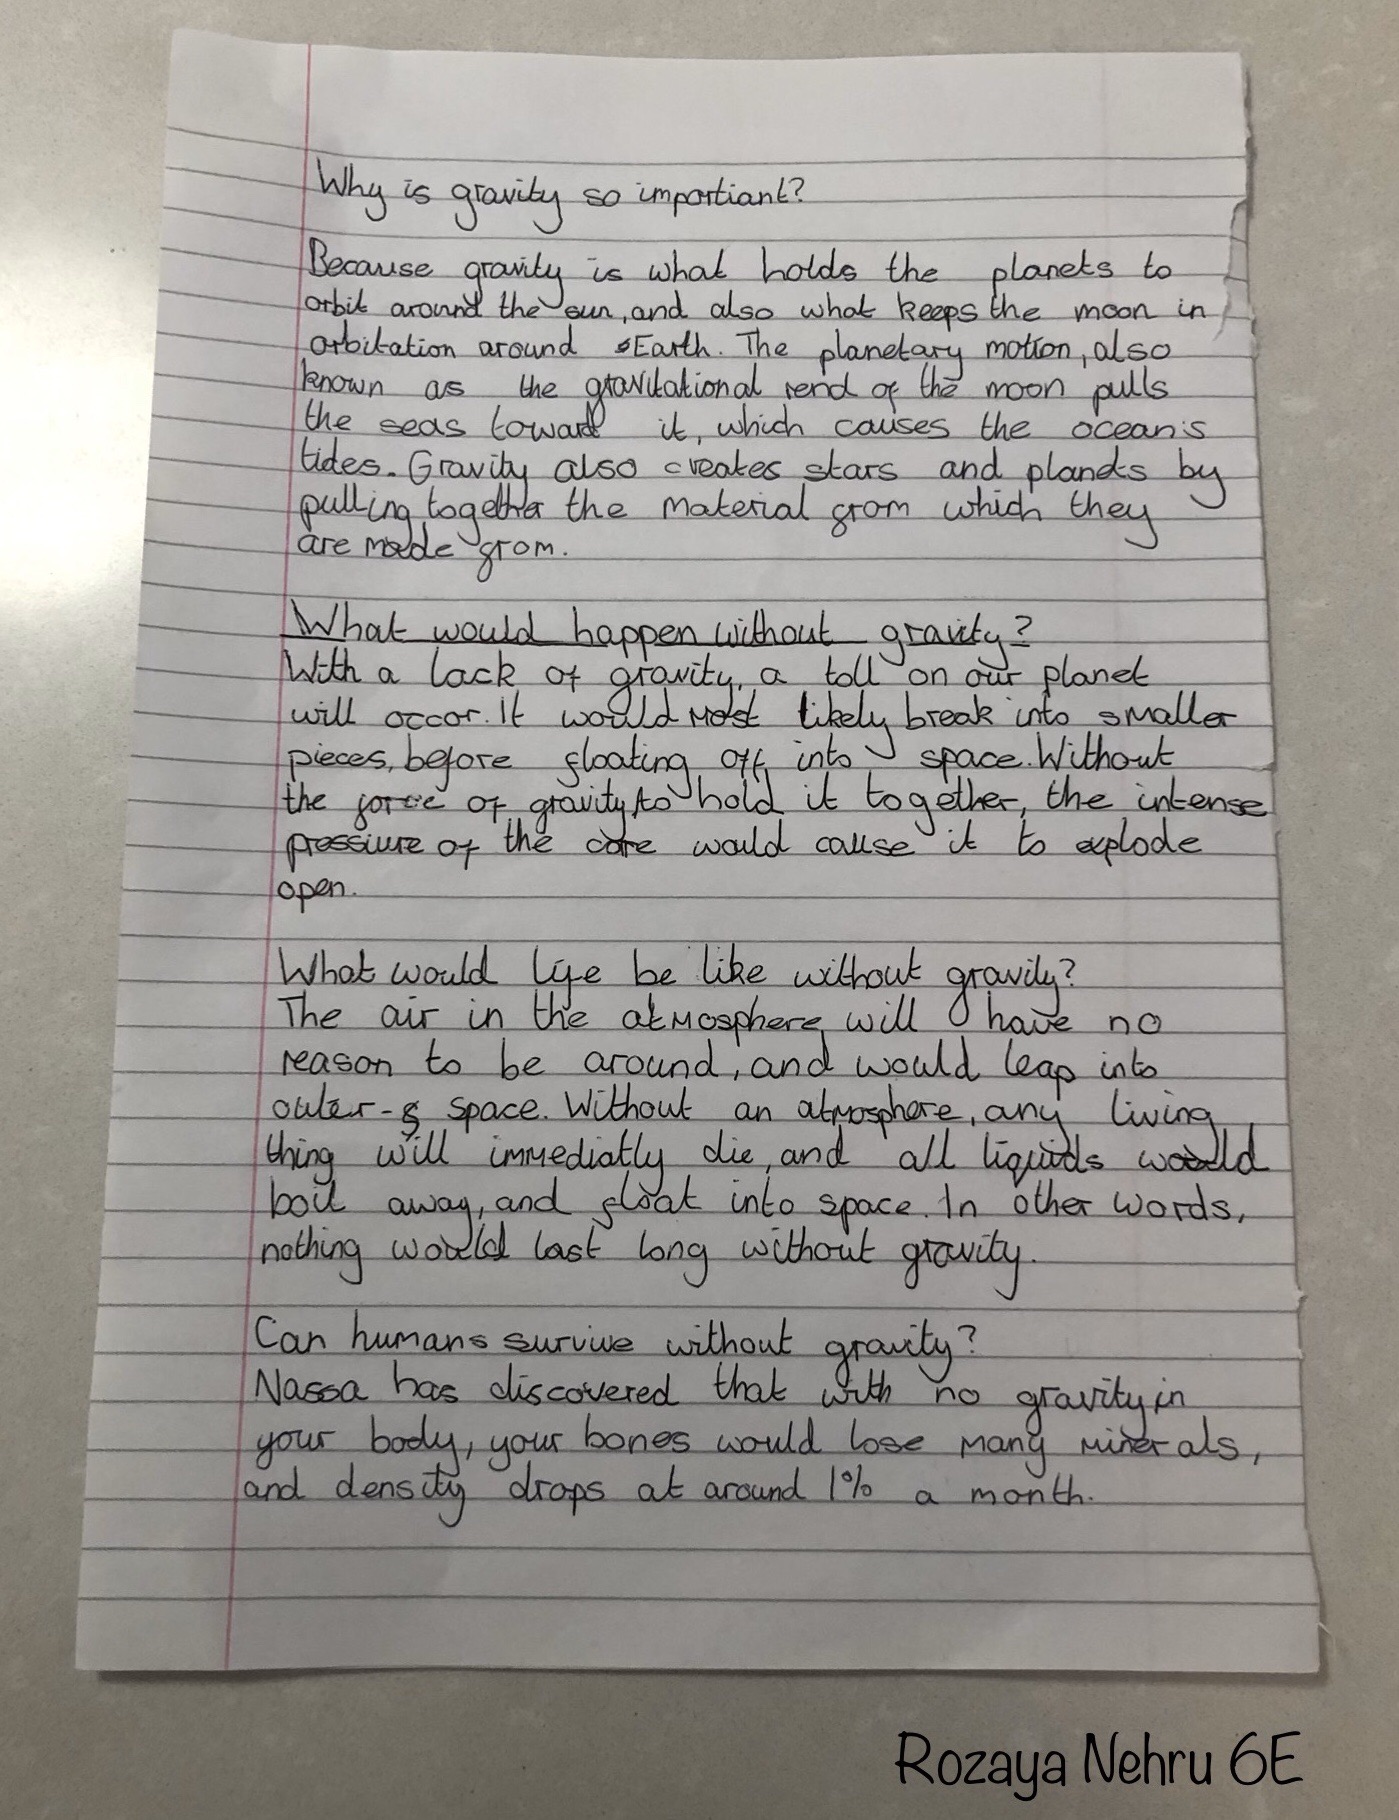 Why is gravity so importiant?
Because gravity is what holds the planets to
orbit around the sun, and also what keeps the moon in
orbitation around Earth. The planetary motion, also
known as the gravitational rend of the moon pulls
the seas toward it, which causes the ocean's
tides. Gravity also creates stars and planets by
pulling together the material from which they
are made from.
What would happen without gravity?
With a lack of gravity, a toll on our planet
will occor. It would most likely break into smaller
pieces, before floating off into space. Without
the force of gravity to hold it together, the intense
pressiure of the core would cause it to explode
open.
What would life be like without gravity?
The air in the atmosphere will have no
reason to be around, and would leap into
outer- space. Without an atmosphere, any living
thing will immediatly die, and all liquids would
boil away, and float into space. In other words,
nothing would last long without gravity.
Can humans survive without gravity?
Nassa has discovered that with no gravity in
your body, your bones would lose many minerals,
and density drops at around 1% a month.
Rozaya Nehru 6E